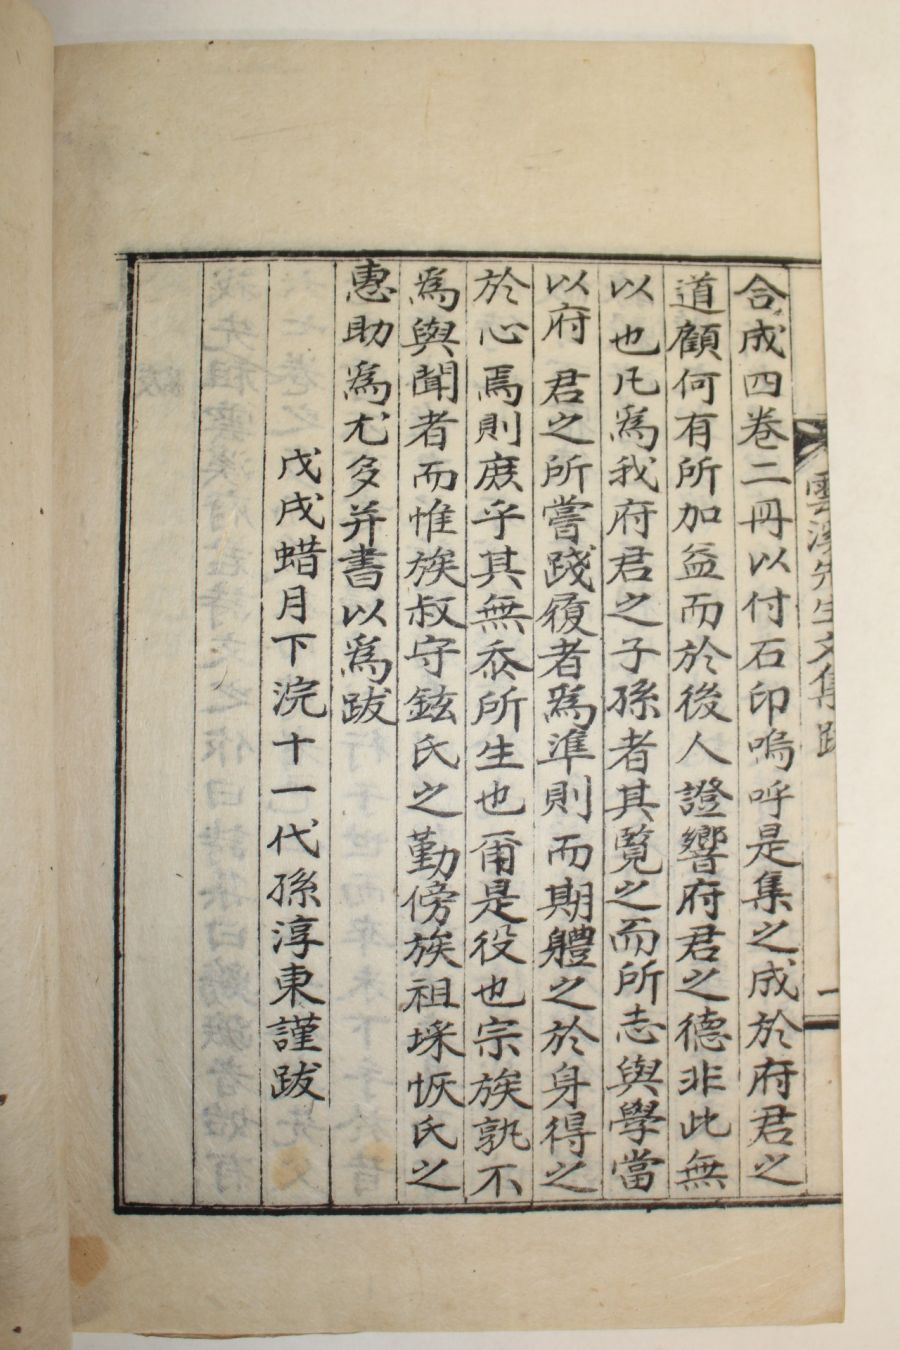 雲溪先生文集跋
一
合成四卷二冊以付石印嗚呼是集之成於府君之
道顧何有所加益而於後人證響府君之德非此無
以也凡爲我府君之子孫者其覽之而所志與學當
以府君之所嘗踐履者爲準則而期體之於身得之
於心焉則庶乎其無忝所生也爾是役也宗族孰不
爲與聞者而惟族叔守鉉氏之勤傍族祖埰恢氏之
惠助爲尤多并書以爲跋
戊戌蜡月下浣十一代孫淳東謹跋